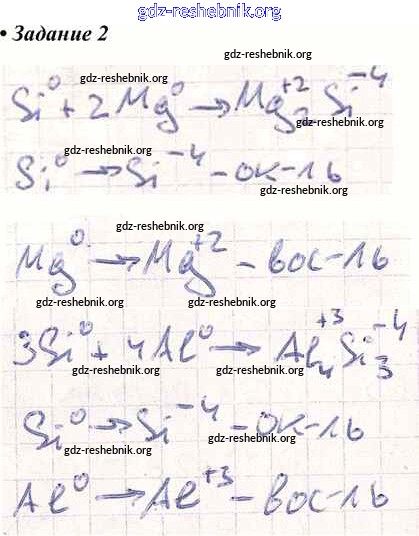 www.gdz-reshebnik.org
• Задание 2
gdz-reshebnik.org
gdz-reshebnik.org
Si⁰ + 2Mg⁰ → Mg₂⁺²Si⁻⁴
gdz-reshebnik.org
gdz-reshebnik.org
Si⁰ → Si⁻⁴ - ок-ль
gdz-reshebnik.org
gdz-reshebnik.org
Mg⁰ → Mg⁺² - вос-ль
gdz-reshebnik.org
gdz-reshebnik.org
gdz-reshebnik.org
3Si⁰ + 4Al⁰ → Al₄⁺³Si₃⁻⁴
gdz-reshebnik.org
gdz-reshebnik.org
gdz-reshebnik.org
Si⁰ → Si⁻⁴ - ок-ль
gdz-reshebnik.org
gdz-reshebnik.org
Al⁰ → Al⁺³ - вос-ль
gdz-reshebnik.org